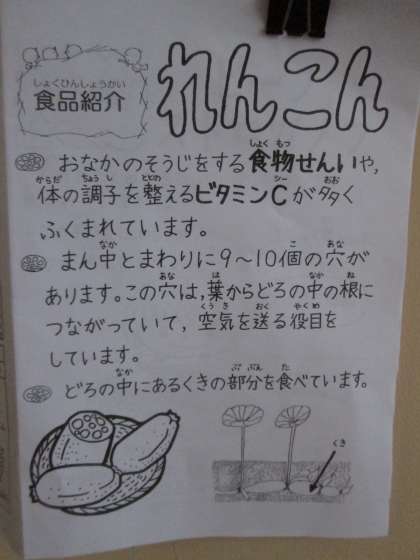 食品紹介
れんこん
おなかのそうじをする食物せんいや,
体の調子を整えるビタミンCが多く
ふくまれています。
まん中とまわりに9～10個の穴が
あります。この穴は,葉からどろの中の根に
つながっていて,空気を送る役目を
しています。
どろの中にあるくきの部分を食べています。
くき